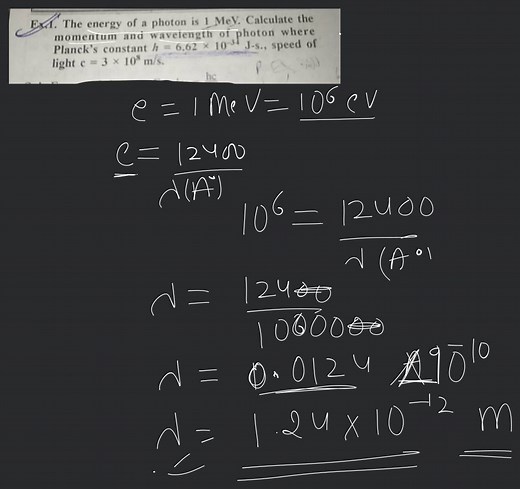 Ex.1. The energy of a photon is 1 MeV. Calculate the
momentum and wavelength of photon where
Planck's constant h = 6.62 × 10⁻³⁴ J-s., speed of
light c = 3 × 10⁸ m/s.
hc
e = 1 MeV = 10⁶ eV
e = 12400 / λ(A°)
10⁶ = 12400 / λ (A°)
λ = 12400 / 1000000
λ = 0.0124 10⁻¹⁰
λ = 1.24 × 10⁻¹² m